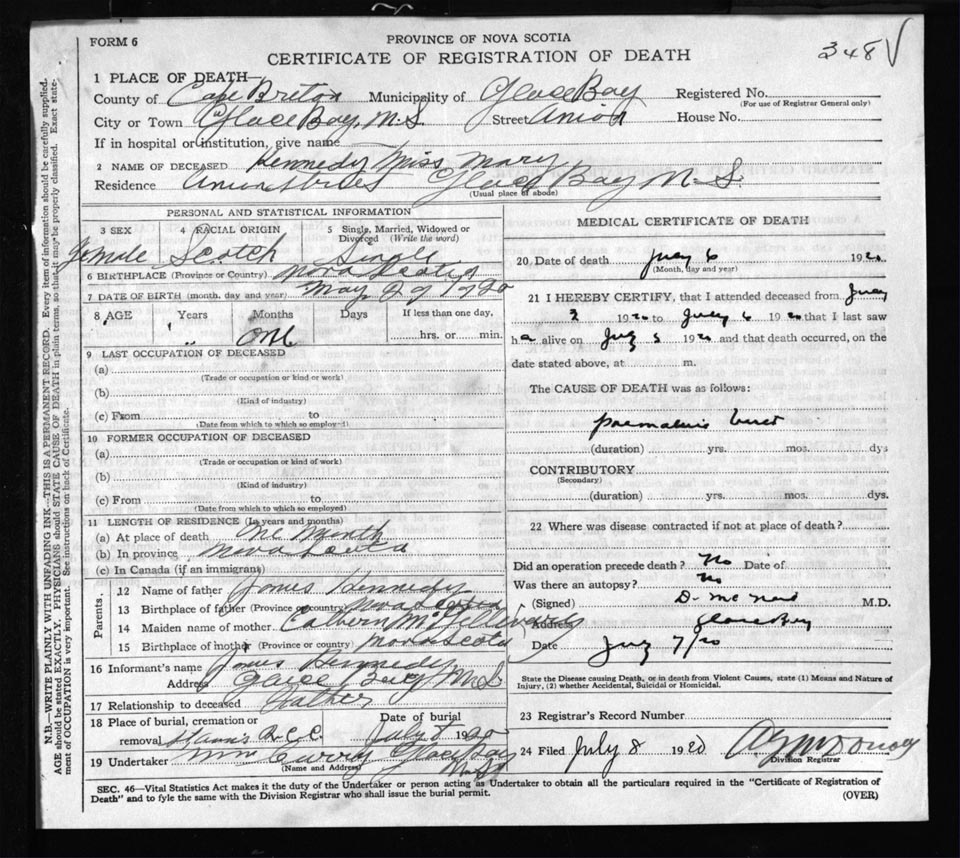 FORM 6
PROVINCE OF NOVA SCOTIA
CERTIFICATE OF REGISTRATION OF DEATH
348
1 PLACE OF DEATH—
County of Cape Breton Municipality of Glace Bay Registered No.
(For use of Registrar General only)
City or Town Glace Bay, N.S Street Union House No.
If in hospital or institution, give name
2 NAME OF DECEASED Kennedy Miss Mary
Residence Union Street Glace Bay N.S.
(Usual place of abode)
PERSONAL AND STATISTICAL INFORMATION
3 SEX 4 RACIAL ORIGIN 5 Single, Married, Widowed or Divorced (Write the word)
Female Scotch Single
6 BIRTHPLACE (Province or Country) Nova Scotia
7 DATE OF BIRTH (month, day and year) May 29 1920
8 AGE Years Months Days If less than one day,
" " one hrs. or min.
9 LAST OCCUPATION OF DECEASED
(a)
(Trade or occupation or kind or work)
(b)
(Kind of industry)
(c) From to
(Date from which to which so employed)
10 FORMER OCCUPATION OF DECEASED
(a)
(Trade or occupation or kind of work)
(b)
(Kind of industry)
(c) From to
(Date from which to which so employed)
11 LENGTH OF RESIDENCE (In years and months)
(a) At place of death One Month
(b) In province Nova Scotia
(c) In Canada (if an immigrant)
Parents
12 Name of father James Kennedy
13 Birthplace of father (Province or country) Nova Scotia
14 Maiden name of mother Cathern
15 Birthplace of mother (Province or country) Nova Scotia
16 Informant's name James Kennedy
Address Glace Bay N.S
17 Relationship to deceased Father
18 Place of burial, cremation or removal St Anns R.C.C. Date of burial July 8 1920
19 Undertaker Wm Curry Glace Bay N.S
(Name and Address)
MEDICAL CERTIFICATE OF DEATH
20 Date of death July 6 1920
(Month, day and year)
21 I HEREBY CERTIFY, that I attended deceased from July
2 1920 to July 6 1920 that I last saw
h alive on July 5 1920 and that death occurred, on the
date stated above, at m.
The CAUSE OF DEATH was as follows:
(duration) yrs. mos. dys
CONTRIBUTORY
(Secondary)
(duration) yrs. mos. dys.
22 Where was disease contracted if not at place of death?
Did an operation precede death? No Date of
Was there an autopsy? No
(Signed) D. McNeil M.D.
Address Glace Bay
Date July 7/20
State the Disease causing Death, or in death from Violent Causes, state (1) Means and Nature of
Injury, (2) whether Accidental, Suicidal or Homicidal.
23 Registrar's Record Number
24 Filed July 8 1920
Division Registrar
SEC. 46—Vital Statistics Act makes it the duty of the Undertaker or person acting as Undertaker to obtain all the particulars required in the "Certificate of Registration of
Death" and to fyle the same with the Division Registrar who shall issue the burial permit.
(OVER)
N.B.—WRITE PLAINLY WITH UNFADING INK—THIS IS A PERMANENT RECORD. Every item of information should be carefully supplied.
AGE should be stated EXACTLY. PHYSICIANS should STATE CAUSE OF DEATH in plain terms, so that it may be properly classified. Exact state-
ment of OCCUPATION is very important. See instructions on back of Certificate.